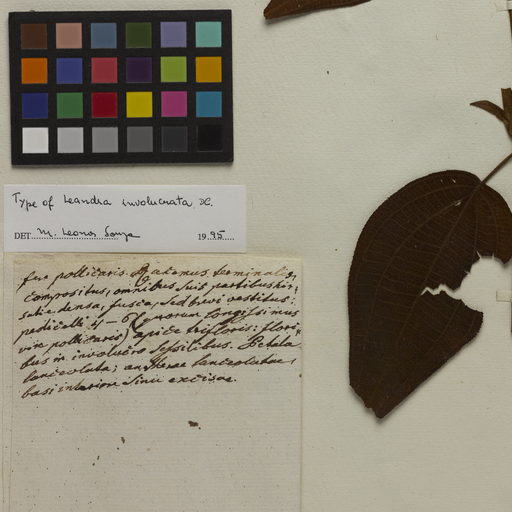 Type of Leandra involucrata DC.
DET. M. Leonor Souza 1995
fere pollicaris. terminalis,
compositus, omnibus suis partibus hir-
sutie densa, fusca, sed brevi vestitus:
pedicelli 4-6 (quorum longissimus
vix pollicaris) apice trifloris: flori-
bus in involucro sessilibus. Petala
lanceolata; antherae lanceolatae,
basi interiore sinu excisae.